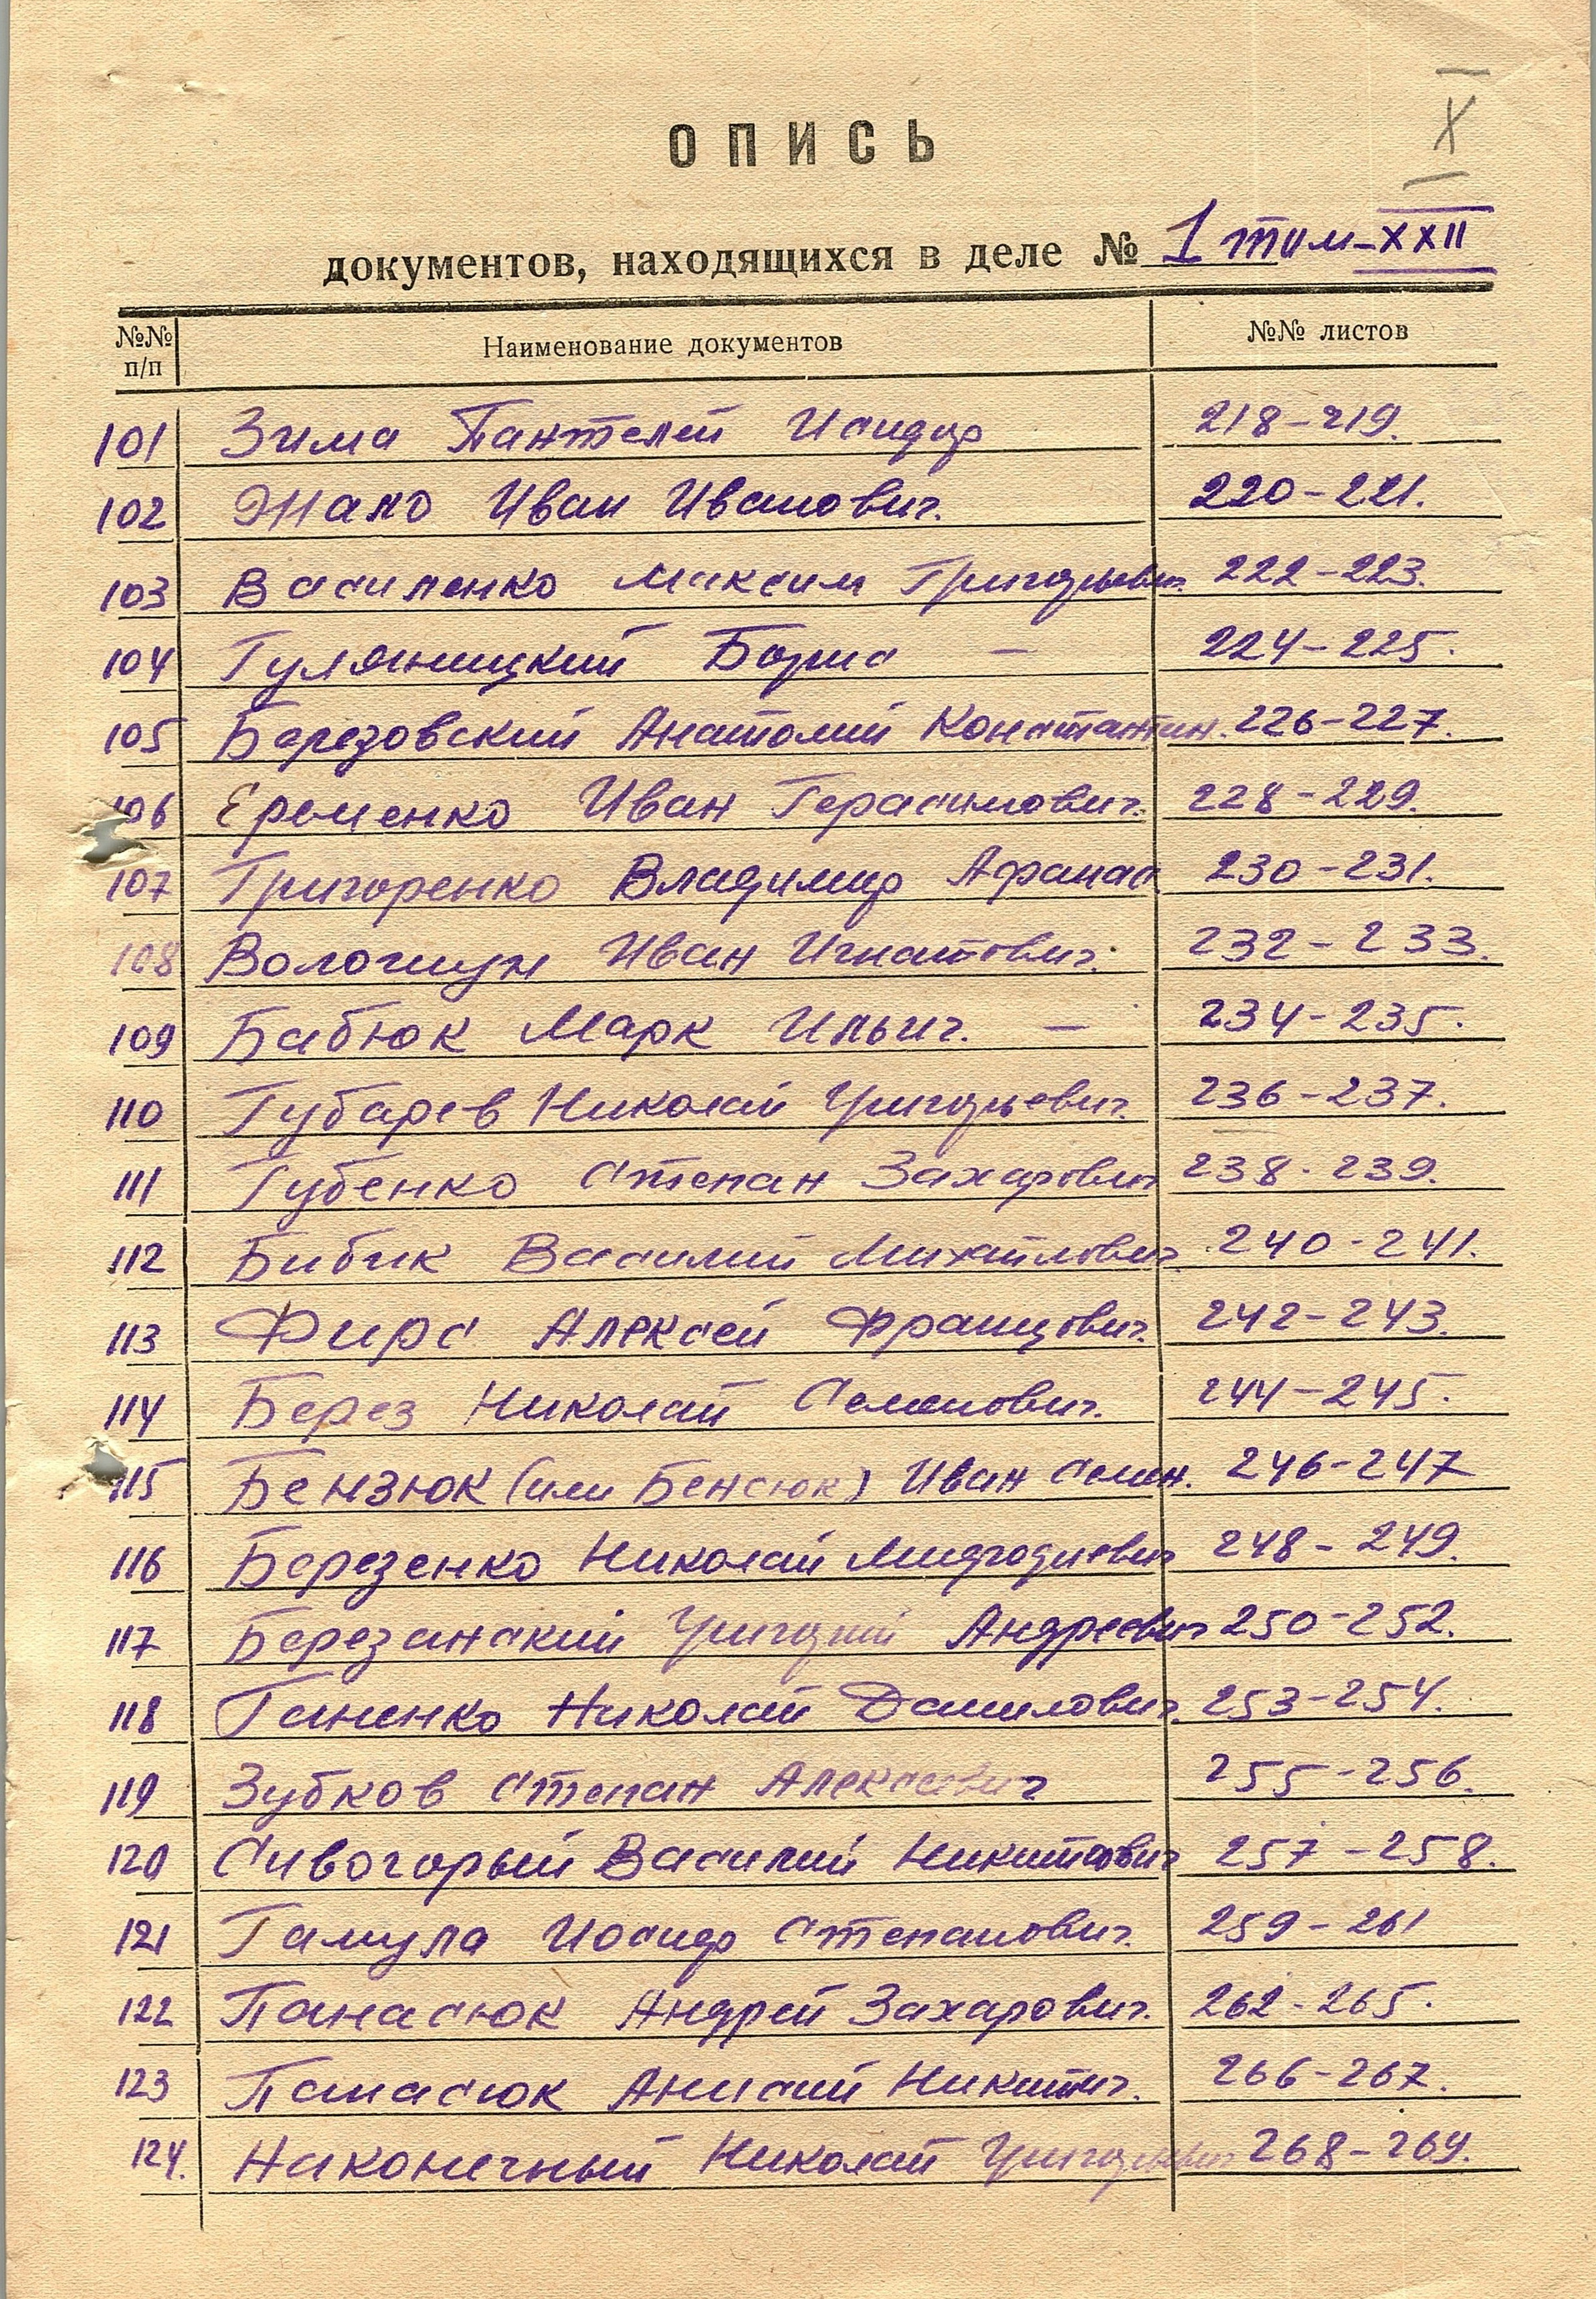 X
ОПИСЬ
документов, находящихся в деле № 1 том-XXII
№№ п/п Наименование документов №№ листов
101 Зима Пантелей Исидор 218-219.
102 Жало Иван Иванович. 220-221.
103 Василенко Максим Григорьевич. 222-223.
104 Гуляницкий Борис — 224-225.
105 Березовский Анатолий Константин. 226-227.
106 Еременко Иван Герасимович. 228-229.
107 Григоренко Владимир Афанас 230-231.
108 Волошун Иван Игнатович. 232-233.
109 Бабюк Марк Ильич. — 234-235.
110 Губарев Николай Григорьевич. 236-237.
111 Губенко Степан Захарович 238-239.
112 Бибик Василий Михайлович. 240-241.
113 Фирс Алексей Францович. 242-243.
114 Берез Николай Семенович. 244-245.
115 Бензюк (или Бенсюк) Иван Семен. 246-247
116 Березенко Николай Мифодиевич 248-249.
117 Березанский Григорий Андреевич 250-252.
118 Ганенко Николай Данилович. 253-254.
119 Зубков Степан Алексеевич 255-256.
120 Сивогорый Василий Никитович 257-258.
121 Гамула Иосиф Степанович. 259-261
122 Панасюк Андрей Захарович. 262-265.
123 Панасюк Анисий Никитич. 266-267.
124. Наконечный Николай Григорьевич 268-269.